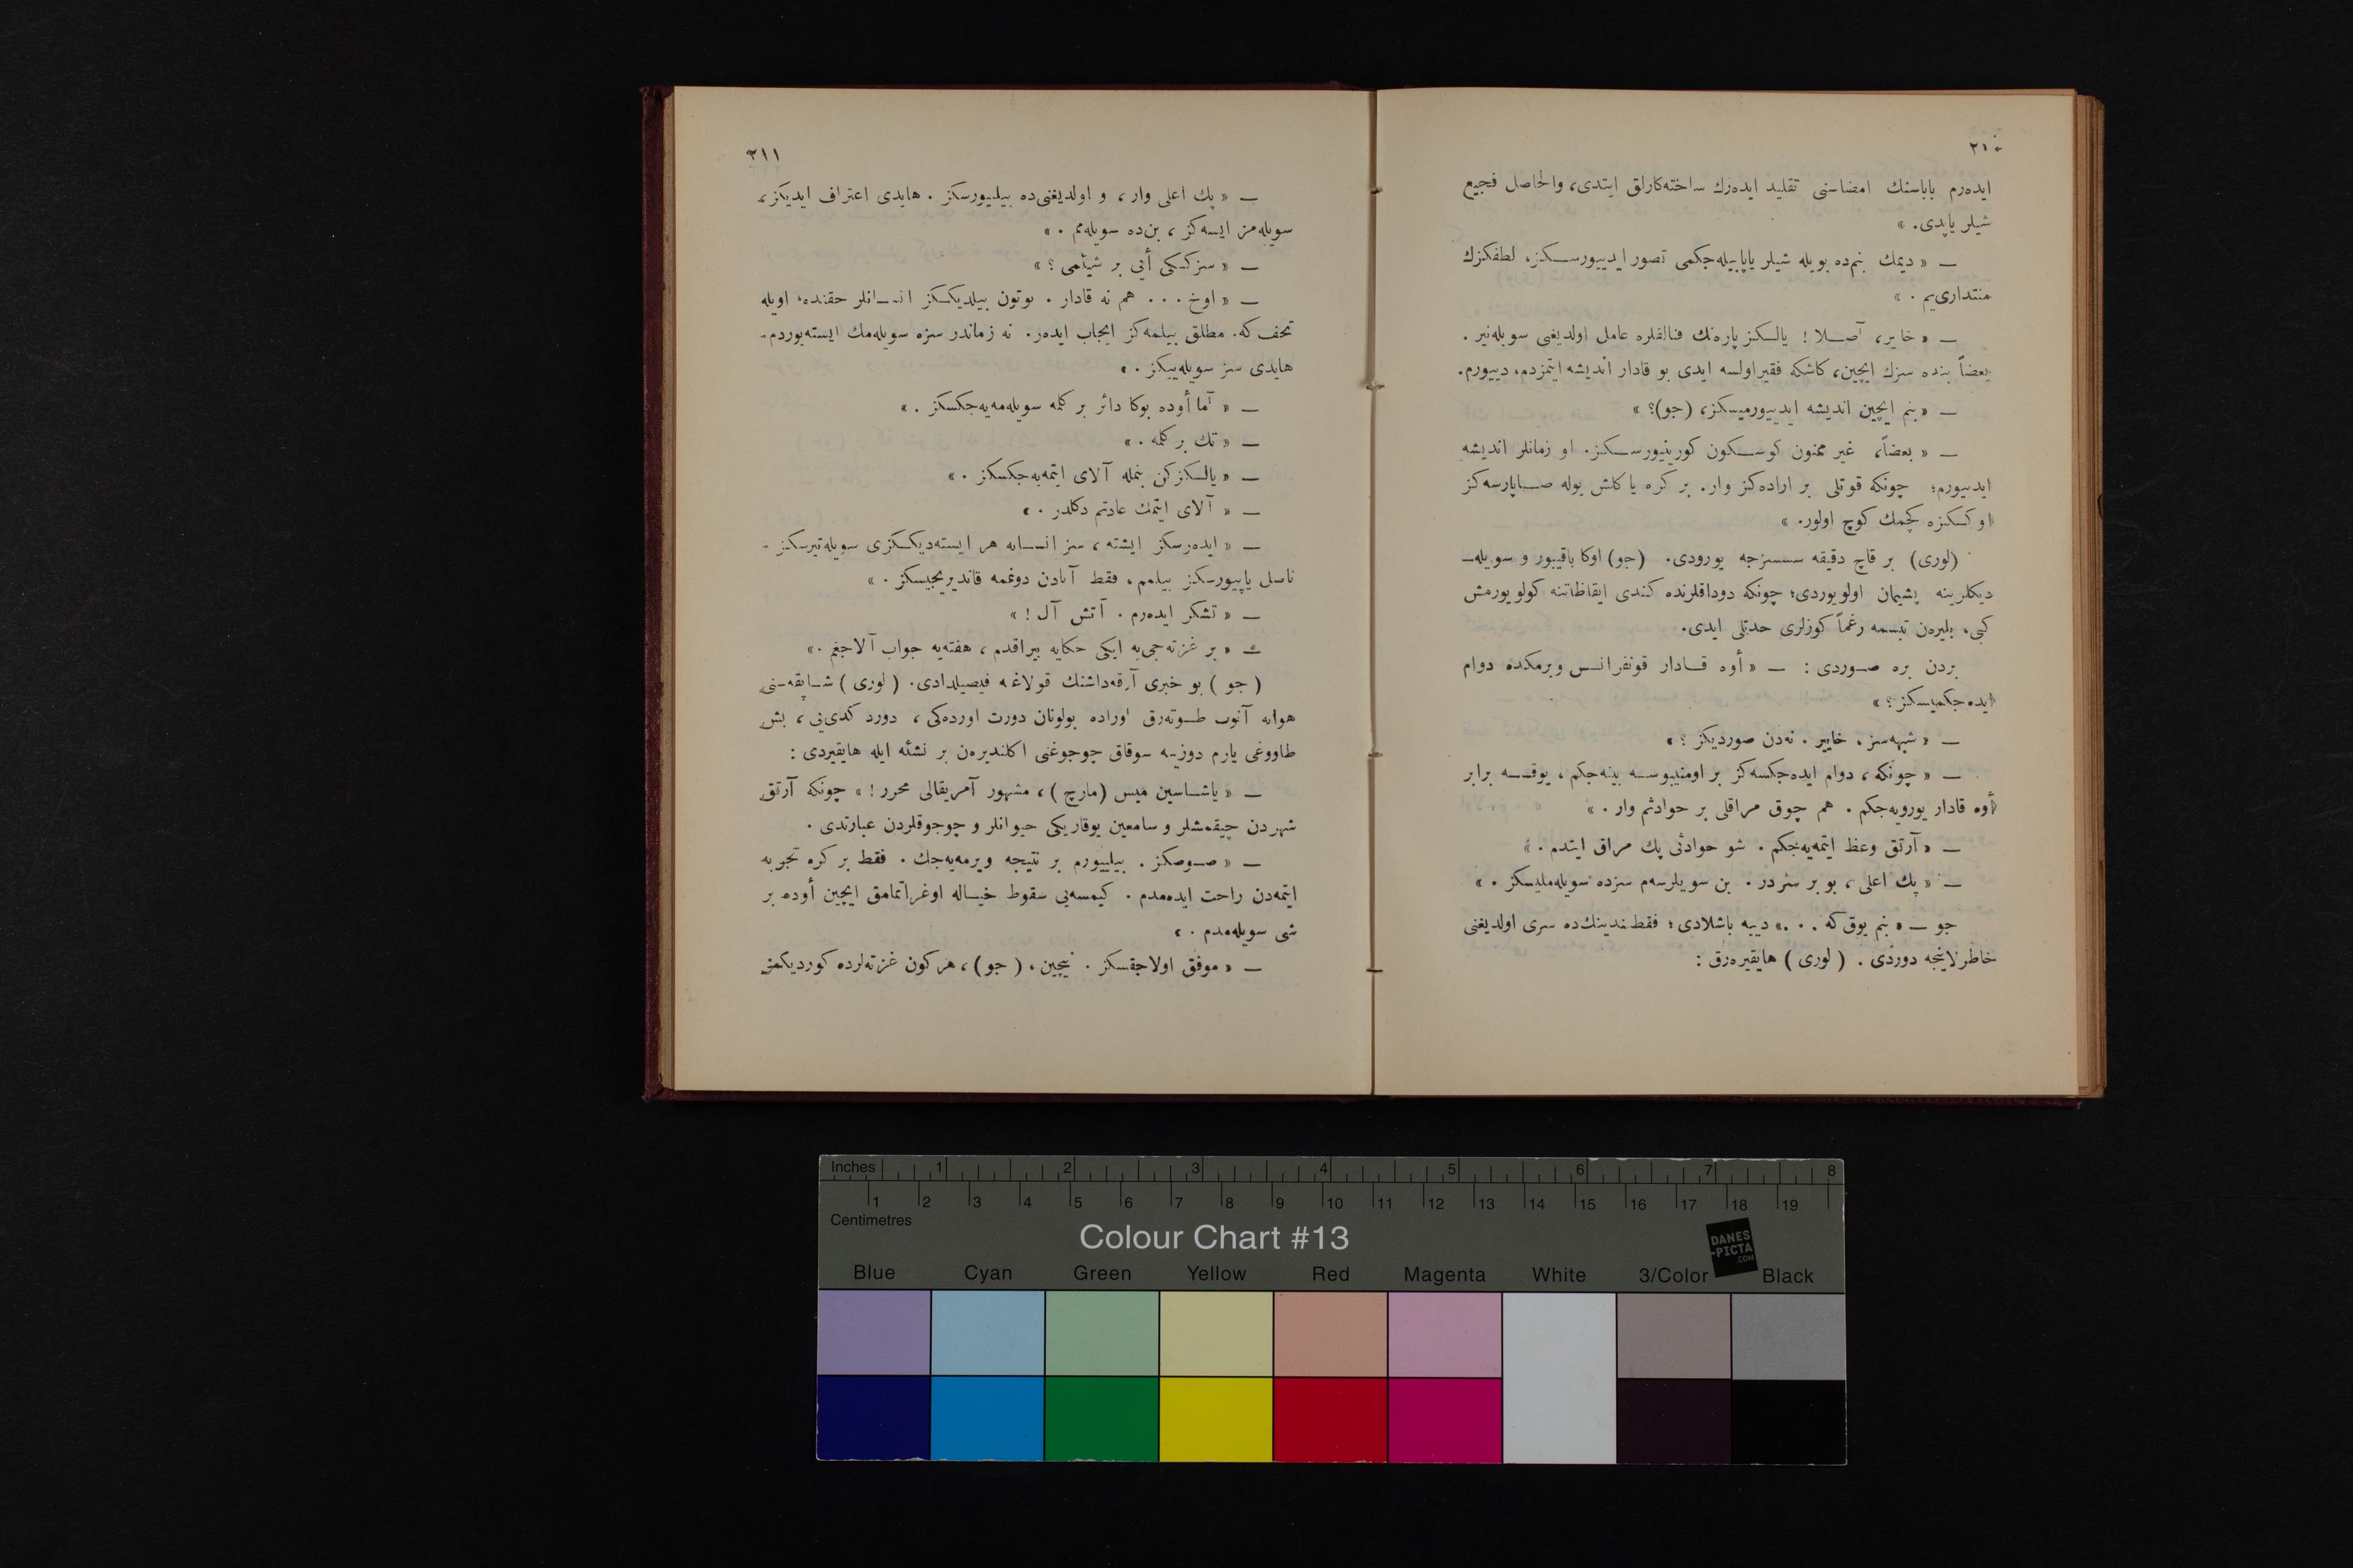 ٢١٠
ایده‌رم باباسنك امضاسنی تقلید ایده‌رك ساخته‌كارلق ایتدی، والحاصل فجیع
شیلر یاپدی. »
— « دیمك بنم‌ده بویله شیلر یاپابیله‌جكمی تصور ایدییورسـكز، لطفكزك
منتداری‌یم . »
— « خایر، آصـلا ! یالـكز پاره‌نك فنالقلره عامل اولدیغی سویله‌نیر .
بعضاً بنده سزك ایچین، كاشكه فقیر اولسه ایدی بو قادار اندیشه ایتمزدم، دییورم.
— « بنم ایچین اندیشه ایدییورمیسكز، (جو)؟ »
— « بعضاً، غیر ممنون كوسـكون كورینیورسـكز. او زمانلر اندیشه
ایدییورم؛ چونكه قوتلی بر اراده‌كز وار. بر كره یا كلش یوله صـاپارسه‌كز
اوكـكزه كچمك كوچ اولور. »
(لوری) بر قاچ دقیقه سسسزجه یورودی. (جو) اوكا باقییور و سویله‌ـ
دیكلرینه پشیمان اولویوردی؛ چونكه دوداقلرنده كندی ایقاظاتنه كولویورمش
كبی، بلیره‌ن تبسمه رغماً كوزلری حدتلی ایدی.
بردن بره صـوردی : — « أوه قـادار قونفرانـس ویرمكده دوام
ایده‌جكمیسكز؟ »
— « شبهه‌سز ، خاییر . نه‌دن صوردیكز ؟ »
— « چونكه ، دوام ایده‌جكسه‌كز بر اومنیبوسـه بینه‌جكم ، یوقـسه برابر
أوه قادار یورویه‌جكم . هم چوق مراقلی بر حوادثم وار . »
— « آرتق وعظ ایتمه‌یه‌جكم . شو حوادثی پك مراق ایتدم . »
— « پك اعلی ، بو بر سردر . بن سویلرسه‌م سزده سویله‌ملیسكز . »
جو — « بنم یوق كه . . .» دییه باشلادی ؛ فقط كندینك‌ده سری اولدیغنی
خاطرلاینجه دوردی . ( لوری ) هایقیره‌رق :
٢١١
— « پك اعلی وار ، و اولدیغنی‌ده بیلییورسكز . هایدی اعتراف ایدیكز ،
سویله‌مز ایسه‌كز ، بن‌ده سویله‌مم . »
— « سزكـكی أیی بر شیئمی ؟ »
— « اوخ . . . هم نه قادار . بوتون بیلدیكـكز انـسانلر حقنده ، اویله
تحف كه . مطلق بیلمه‌كز ایجاب ایده‌ر . نه زماندر سزه سویله‌مك ایسته‌یوردم .
هایدی سز سویله‌ییكز . »
— « آما أوده بوكا دائر بر كله سویله‌مه‌یه‌جكسكز . »
— « تك بر كله . »
— « یالـكزكن بنمله آلای ایتمه‌یه‌جكسكز . »
— « آلای ایتمك عادتم دكلدر . »
— « ایده‌رسكز ایشته ، سز انـسانه هر ایسته‌دیكـكزی سویله‌تیرسكز .
ناصل یاپییورسكز بیلمم ، فقط آنادن دوغمه قاندیریجیسكز . »
— « تشكر ایده‌رم . آتش آل ! »
— « بر غزته‌جی‌یه ایكی حكایه بیراقدم ، هفته‌یه جواب آلاجغم . »
( جو ) بو خبری آرقه‌داشنك قولاغنه فیصیلدادی . ( لوری ) شـاپقه‌سنی
هوایه آتوب طـوته‌رق اوراده بولونان دورت اورده‌كی ، دورد كدی‌یی ، بش
طاووغی یارم دوزینه سوقاق چوجوغنی اكلندیره‌ن بر نشئه ایله هایقیردی :
— « یاشـاسین میس (مارچ) ، مشهور آمریقالی محرر ! » چونكه آرتق
شهردن چیقمشلر و سامعین یوقاریكی حیوانلر و چوجوقلردن عبارتدی .
— « صـوصكز . بیلییورم بر نتیجه ویرمه‌یه‌جك . فقط بر كره تجربه
ایتمه‌دن راحت ایده‌مدم . كیمسه‌یی سقوط خیـاله اوغراتمامق ایچین أوده بر
شی سویله‌مدم . »
— « موفق اولاجقسكز . نیچین ، ( جو ) ، هر كون غزته‌لرده كوردیكمز
Inches 1 2 3 4 5 6 7 8
1 2 3 4 5 6 7 8 9 10 11 12 13 14 15 16 17 18 19
Centimetres
Colour Chart #13
DANES
-PICTA
.COM
Blue Cyan Green Yellow Red Magenta White 3/Color Black